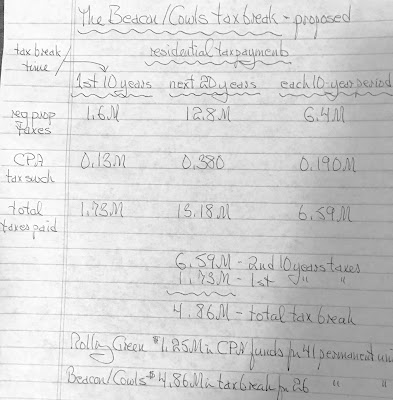 The Beacon/Cowls tax break - proposed
tax break time
residential tax payments
1st 10 years next 20 years each 10-year period
reg prop taxes 1.6M 12.8M 6.4M
CPA tax such 0.13M 0.380 0.190M
total taxes paid 1.73M 13.18M 6.59M
6.59M - 2nd 10 years taxes
1.73M - 1st " "
4.86M - total tax break
Rolling Green $1.25M in CPA funds for 41 permanent uni
Beacon/Cowls $4.86M in tax break for 26 " "